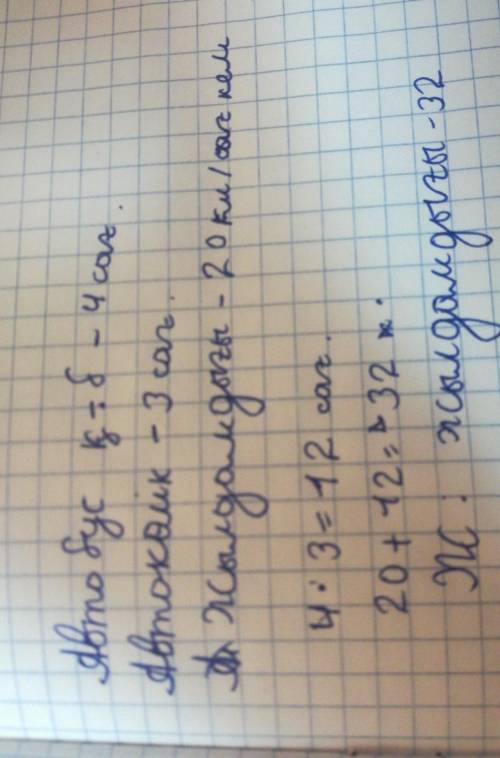 Автобус қ-б - 4 сағ.
Автокөлік - 3 сағ.
Жылдамдығы - 20 км/сағ кем
4·3=12 сағ.
20+12=32 к.
Ж: жылдамдығы-32